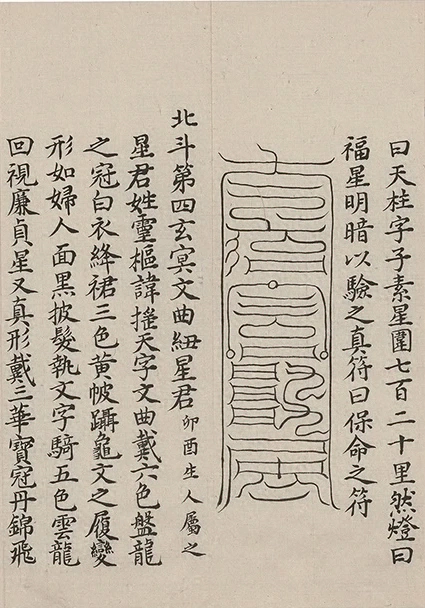 曰天柱字子素星圍七百二十里然燈曰
福星明暗以驗之真符曰保命之符
北斗第四玄冥文曲紐星君卯酉生人屬之
星君姓靈樞諱搖天字文曲戴六色盤龍
之冠白衣絳裙三色黃帔躡龜文之履變
形如婦人面黑披髮執文字騎五色雲龍
回視廉貞星又真形戴三華寶冠丹錦飛